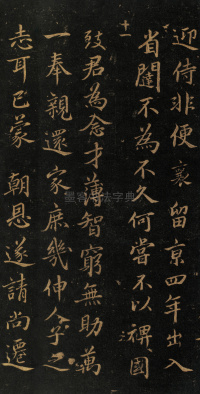 迎侍非便襄留京四年出入
省闥不為不久何嘗不以裨國
致君為念才薄智窮無助萬
一奉親還家庶幾伸人子之
志耳已蒙 朝恩遂請尚遷